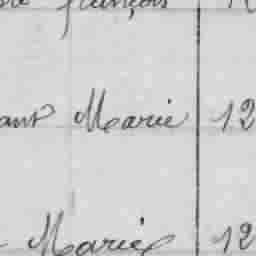 françois
Marie 12
Marie 12